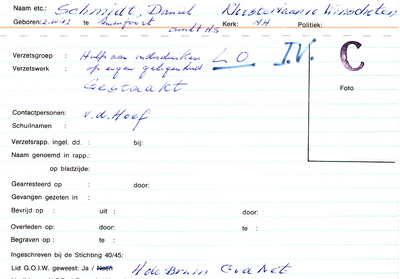 Naam etc.: Schmidt, Daniel
Geboren: te Amersfoort Kerk: NH Politiek:
Verzetsgroep : Hulp aan onderduikers L.O. I.V. C
Verzetswerk : op eigen gelegenheid
Gestaakt
Foto
Contactpersonen: v.d. Hoef
Schuilnamen :
Verzetsrapp. ingel. dd. : bij:
Naam genoemd in rapp.:
op bladzijde:
Gearresteerd op : door:
Gevangen gezeten in :
Bevrijd op : uit : door:
Overleden op: door: te :
Begraven op : te :
Ingeschreven bij de Stichting 40/45:
Lid G.O.I.W. geweest: Ja / Neen H de Bruin